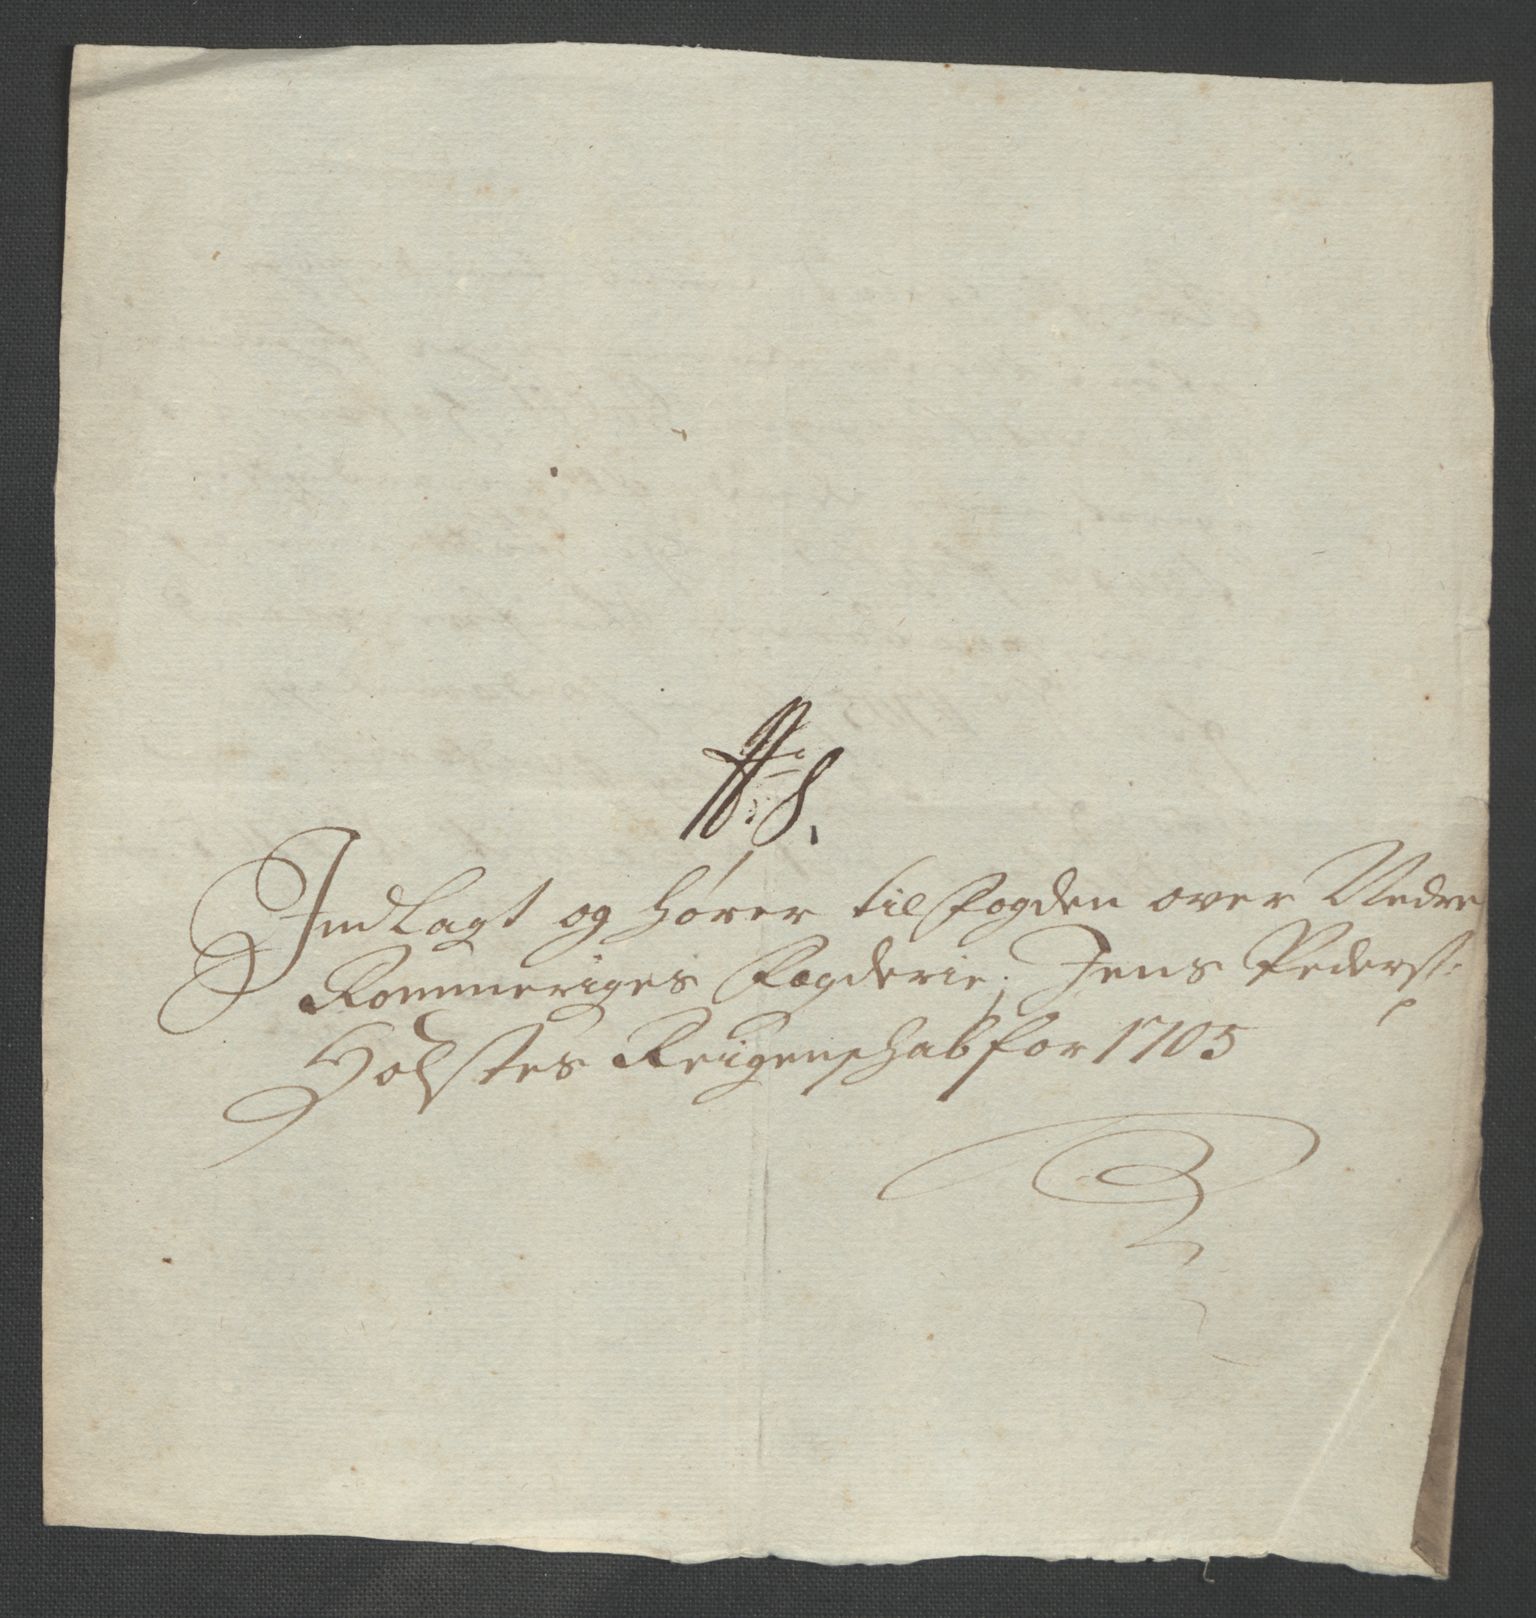 No 8.
Indlagt og hører til Fogden over Nedre
Rommeriges Fogderie, Jens Pederst:
Holstes Reigenschab for 1705